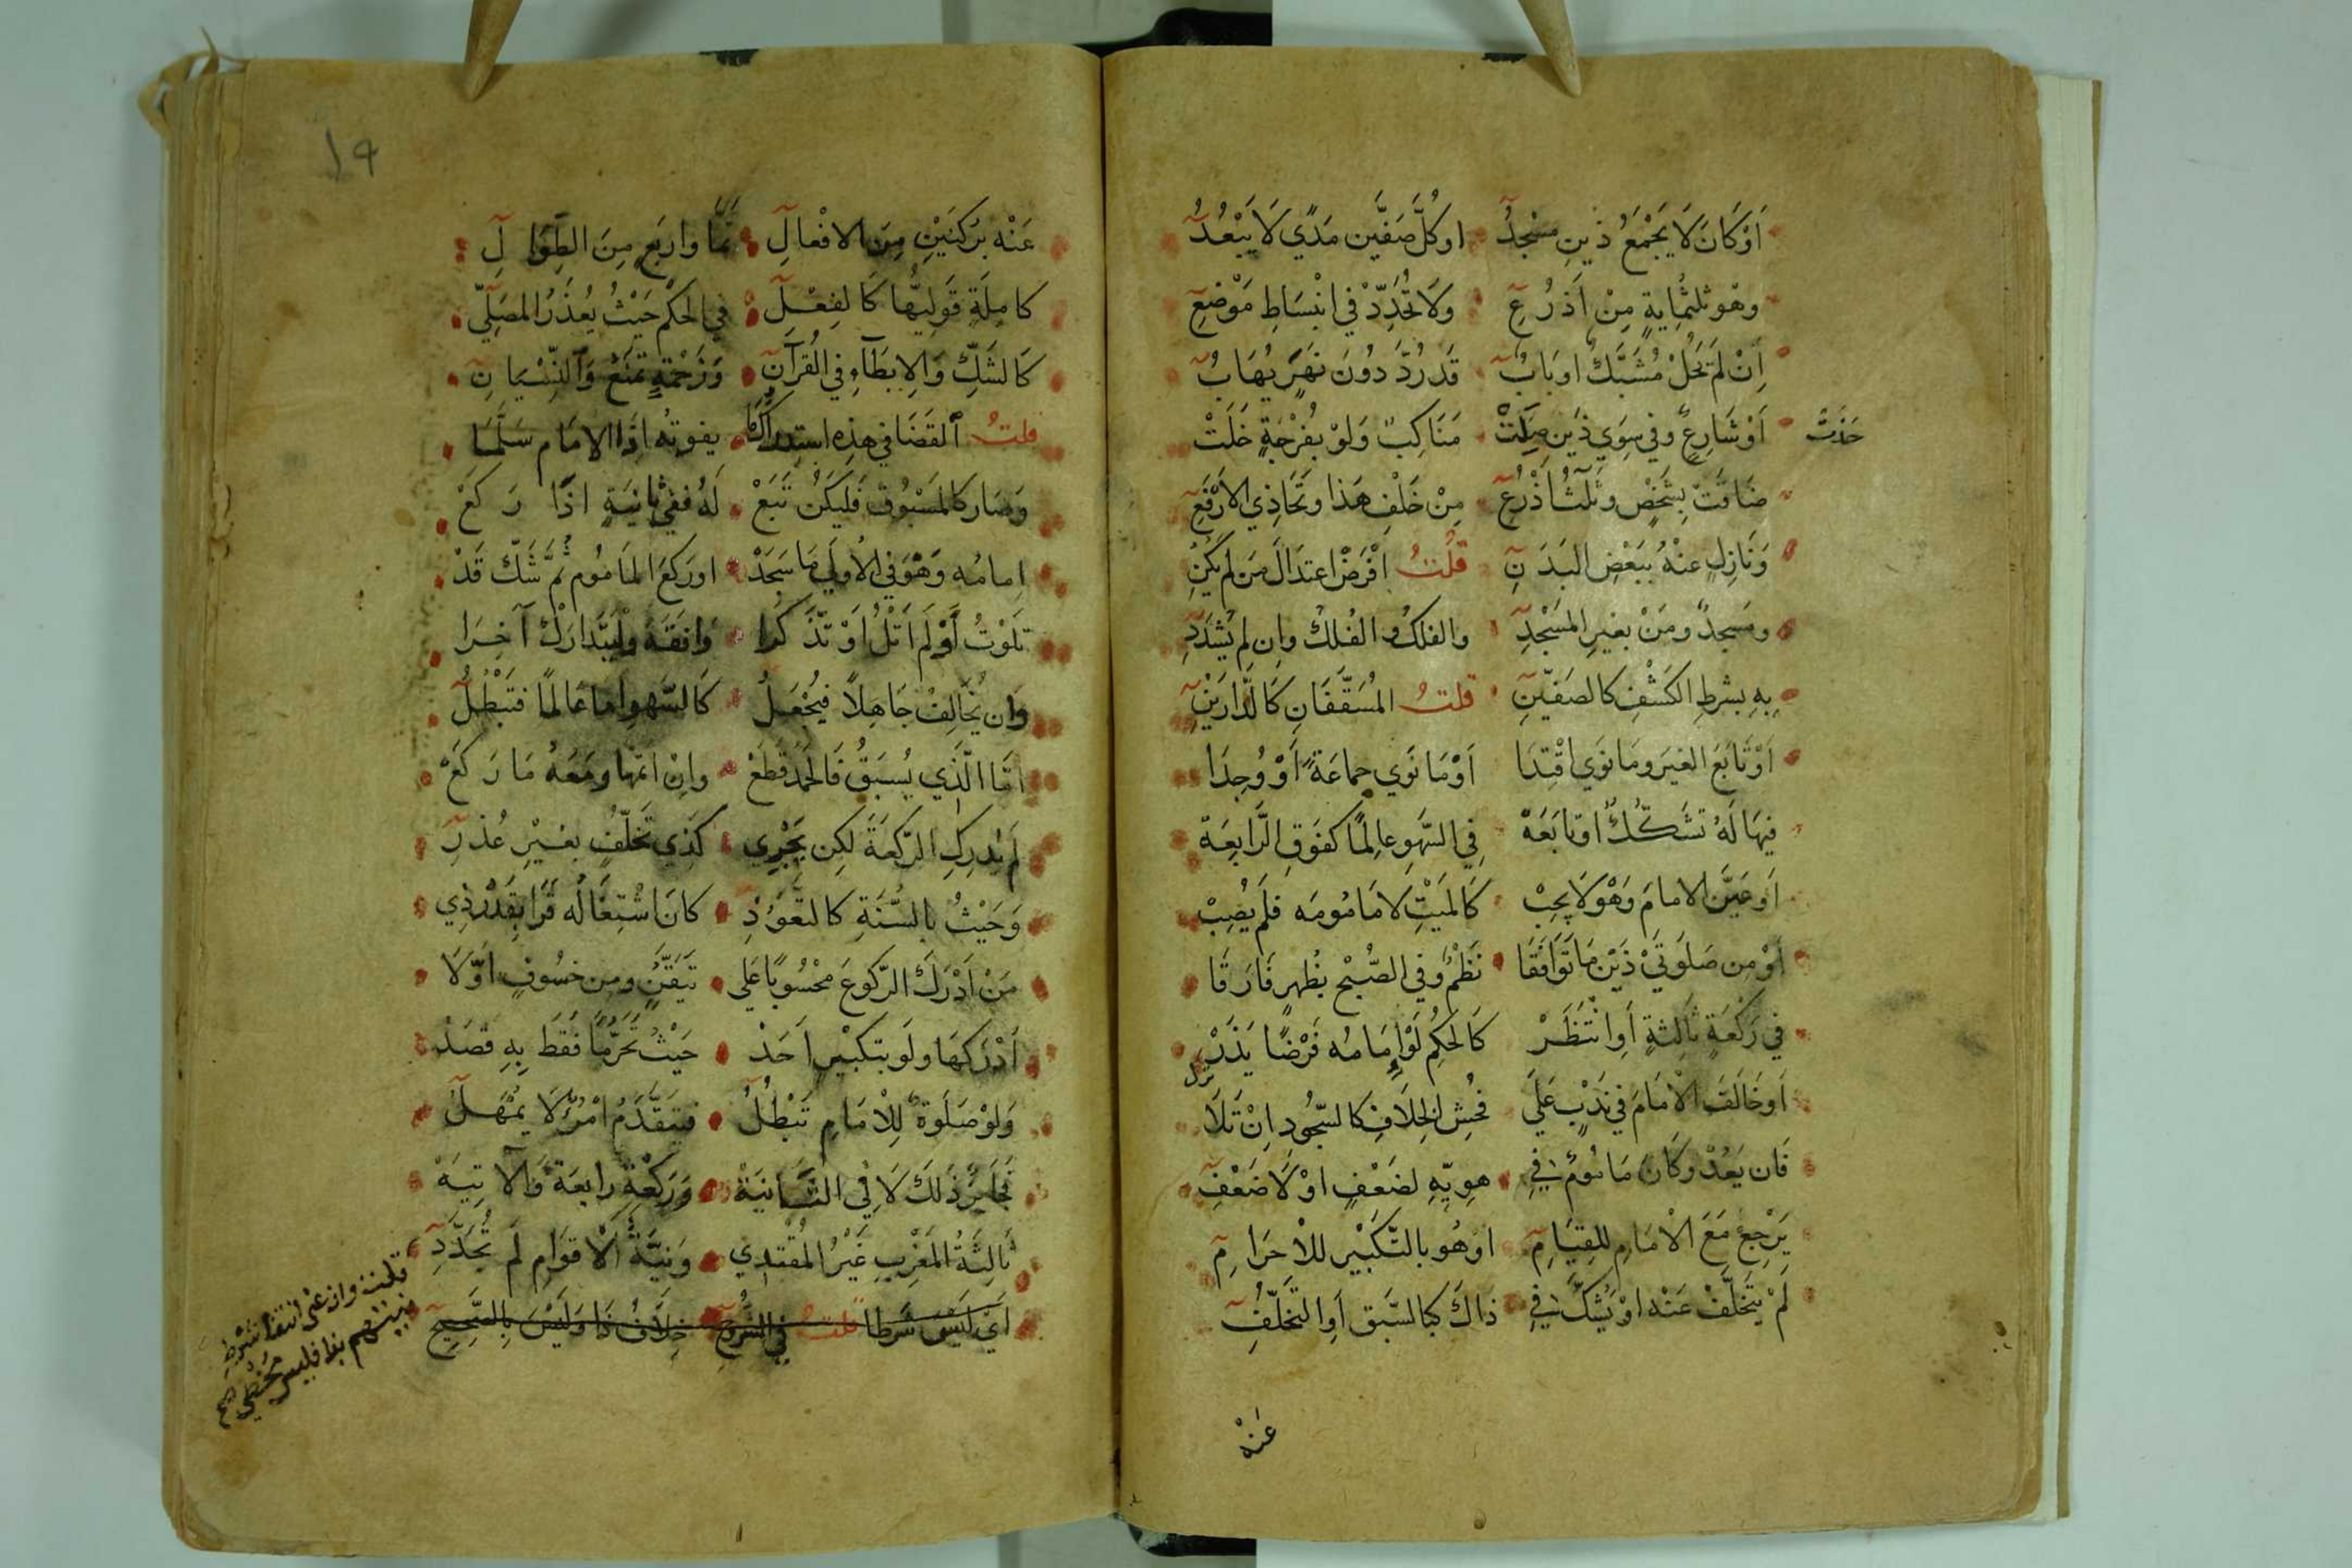 أَوْ كَانَ لَا يَجْمَعُ ذَيْنِ مَسْجِدُ اوكُلَّ صَفَّيْنِ مَدًي لَا يَبْعُدُ
وهْو ثلثُمِايةٍ مِنْ اَذرُعِ وَلَا تُحَدِّدْ فِي انْبِسَاطِ مَوْضِعِ
إِنْ لَمْ يَحُلْ مُشَبَّكٌ اوبَابٌ قَدْ رُدَّ دُونَ نَهَرٍ يُهَابُ
اَوْ شَارِعٍ وفي سِوَي ذَيْنِ صِلَتْ مَنَاكِبٌ وَلوْ بفُرْجَةٍ خَلَتْ
حَذَتْ
ضَاقَتْ بِشَخْصٍ وثَلثُ أَذْرُعِ مِنْ خَلْفِ هَذا وتَحَاذِي الارْفَعِ
وَنَازِلٍ عنْهُ ببَعْضِ البَدَنِ قلتُ افْرَضْ اعتدَالَ مَن لم يَكُنِ
ومَسجدٌ ومَنْ بغيرِ المَسْجِدِ والفلكُ والفُلكُ وإِن لم يُشدَدِ
بِهِ بشرطِ الكَشْفِ كالصفَيّنِ قلتُ المُسَقَّفَانِ كَالدَّارَيْنِ
اَوْ تَابَعَ الغيَر ومَا نَوَي اقْتِدَا اَوْ مَا نَوَي جماعَةً أَوْ وُجِدَا
فِيهَا لَهُ تشَكّكٌ اوتابَعَهْ فِي السَّهوِ عالِمًا كفَوَقِ الرَّابِعَة
اَوعَيَّنَ الامامَ وَهْوَ لَا يجِبْ كَالمَيْتِ لَا مَامُومَه فلَم يُصِبْ
اَوْ مِن صَلَوتَيْ ذَيْن مَا تَوَافَقَا نَظْمٌ وفي الصّبْحِ بظُهرٍ فَارَقَا
في رَكْعَةٍ ثَالِثةٍ أَوِانْتَظَرْ كَالحُكمِ لَوْ إمَامُه فَرْضًا يَذَرْ
اَوخَالَفَ الْامَامَ في نَدْبٍ عَلَي فُحْشِ الخِلَافِ كالسّجُودِ إِنْ تَلَا
فَان يَعُدْ وكَانَ مَامُومٌ فِي هوِيّهِ لضَعْفٍ اوْ لَا ضَعْفِ
يَرْجعْ مَعَ الْامَامِ للقِيَامِ اوهُو بالتّكبَيْرِ للْاحرَامِ
لَمْ يتَخلَّفْ عَنْه اوْ يَشكَّ فِي ذاكَ كبالسَّبقِ أَوِ التَخلّفِ
عَنْهُ
١٩
عَنْه برُكنَيْنِ مِنَ الافْعالِ تمَّا واربَعٍ مِنَ الطِّوَالِ
كامِلَةٍ قَوليُّها كَالفِعْلِ في الحكْم حَيْثُ يُعْذَرُ المصَلِّي
كَالشَكِّ وَالإبطَآءِ في القُرآنِ وَزَحْمَةٍ تمنَعُ وَالنِّسْيَانِ
قلتُ القَضَا في هذِه استدراكُ مَا يفوتُه اذَا الامَام سَلَّمَا
وَصَار كالمَسْبُوقِ فَليَكُنْ تَبَعْ لَهُ ففي ثانِيَةٍ اذَا رَكَعْ
اِمامُه وَهْوَ في الْاولَي مَا سَجَدْ اوركَعَ المَامُوم ثُمَّ شَكّ قَدْ
تَلَوْتُ أَوْ لَم اَتْلُ اَوْ تَذَكَّرا وافَقَهُ ولْيَتَدارَكْ آخِرَا
وَان يُخَالِفْ جَاهِلاً فيُجْعَلُ كَالسّهوِ اما عَالمًا فتَبْطُلُ
امَّا الّذَي يُسبَقُ فَالحمَد قطَعْ وإِنْ اتمّها ومَعَهُ مَا رَكَعْ
لم يُدرِكِ الرّكعَةَ لكِن يَجْرِي كَذِي تَخلّفٍ بغيْرِ عُذرِ
وَحَيْثُ بالسُّنَةِ كالتعَّوُذِ كانَ اشْتِغَالُه قَرَا بِقَدْرِ ذِي
مَنْ اَدْرَكَ الرّكوعَ محْسُوبًا عَلي تيَقّنٍ ومِن خسُوفٍ اوّلَا
اَدْرَكهَا ولَو بتكبيْرٍ اَحَدْ حَيْثُ تَحَرُّمًا فَقَطْ بِهِ قصَدْ
وَلوْ صَلَوةٌ لِلْامَامِ تَبْطُلُ فيتقَدَّمُ امْرُؤٌ لَا يمْهَلُ
فجَايزٌ ذَلكَ لَا فِي الثّانِيَةْ وَرَكعَةٍ رابعَة وَالآتِيَهْ
ثَالِثَةُ المَغْرِبِ غَيْرُ المُقْتدِي وَنيَّةُ الْاقوَامِ لَم تُجَدَّدِ
اَيْ لَيْسَ شَرطا قلتُ في الشرحِ خِلَافُ ذَا وَلَيْسَ بِالصَّحِيحِ
قلت وان عنى انتفا شرط
نيتهم بذا فليس مُخطي صح